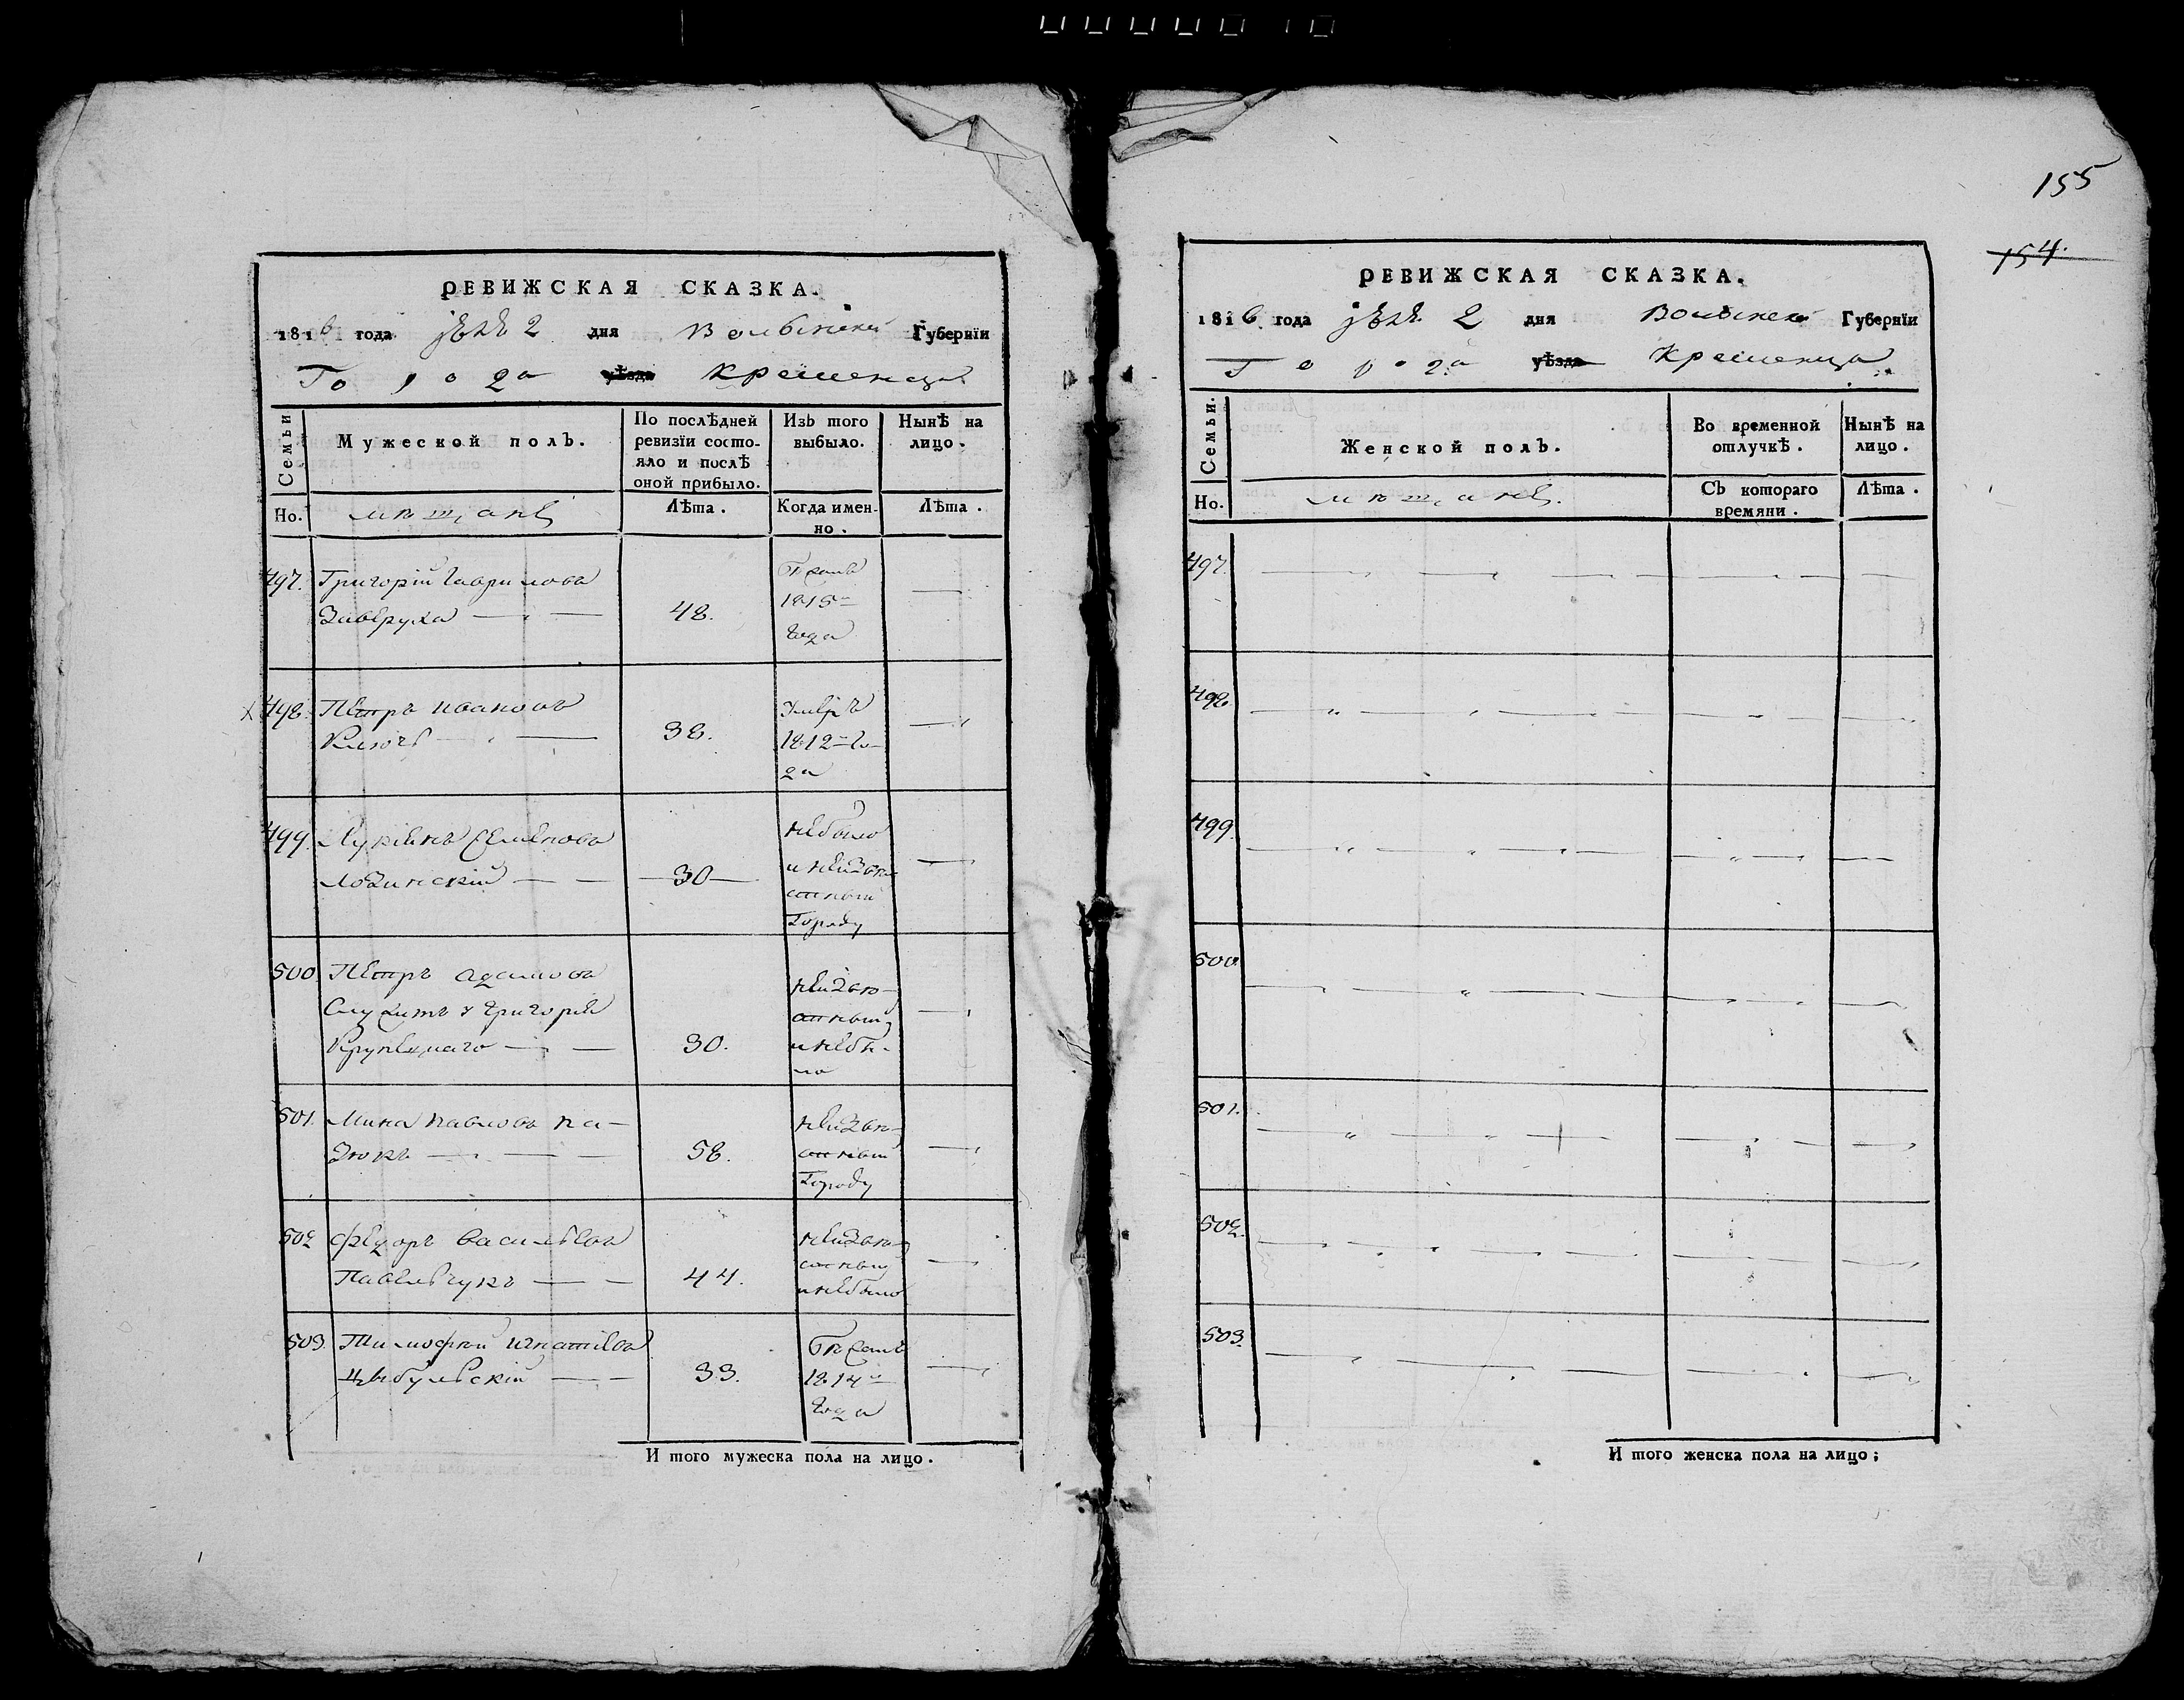 155
154.
РЕВИЖСКАЯ СКАЗКА.
1816 года дня 2 Волынской Губернїи
Города уѣзда Кременца
Семьи
Мужеской полъ.
По послѣдней ревизїи состо-
яло и послѣ
оной прибыло.
Изъ того
выбыло.
Нынѣ на
лицо.
Но.
мѣщане
Лѣта.
Когда имен-
но.
Лѣта.
497. Григорій Гаврилова
Заверуха 48.
Бѣжалъ
1815
года
498. Петръ Ивановъ
Ключъ 38.
Умеръ
1812 го-
да
499. Лукіянъ Семеновъ
Лозинскій 30
небыло
и неизвѣ-
стный
Городу
500. Петръ Адамовъ
Служитъ у Григорія
30.
неизвѣ-
стный
и небы-
ло
501. Мина Павловъ Па-
зюкъ 58.
неизвѣ-
стный
Городу
502 Федоръ Васильевъ
Павельчукъ 44.
неизвѣ-
стный
и небыло
503. Тимофѣй Игнатіевъ
Цыбульскій 33.
Бѣжалъ
1814
года
И того мужеска пола на лицо.
РЕВИЖСКАЯ СКАЗКА.
1816 года 2 дня Волынской Губернїи
Города уѣзда Кременца
Семьи.
Женской полъ.
Во временной
отлучкѣ.
Нынѣ на
лицо.
Но.
мѣщане.
Съ котораго
времяни.
Лѣта.
497.
498.
499.
500.
501.
502.
503.
И того женска пола на лицо;